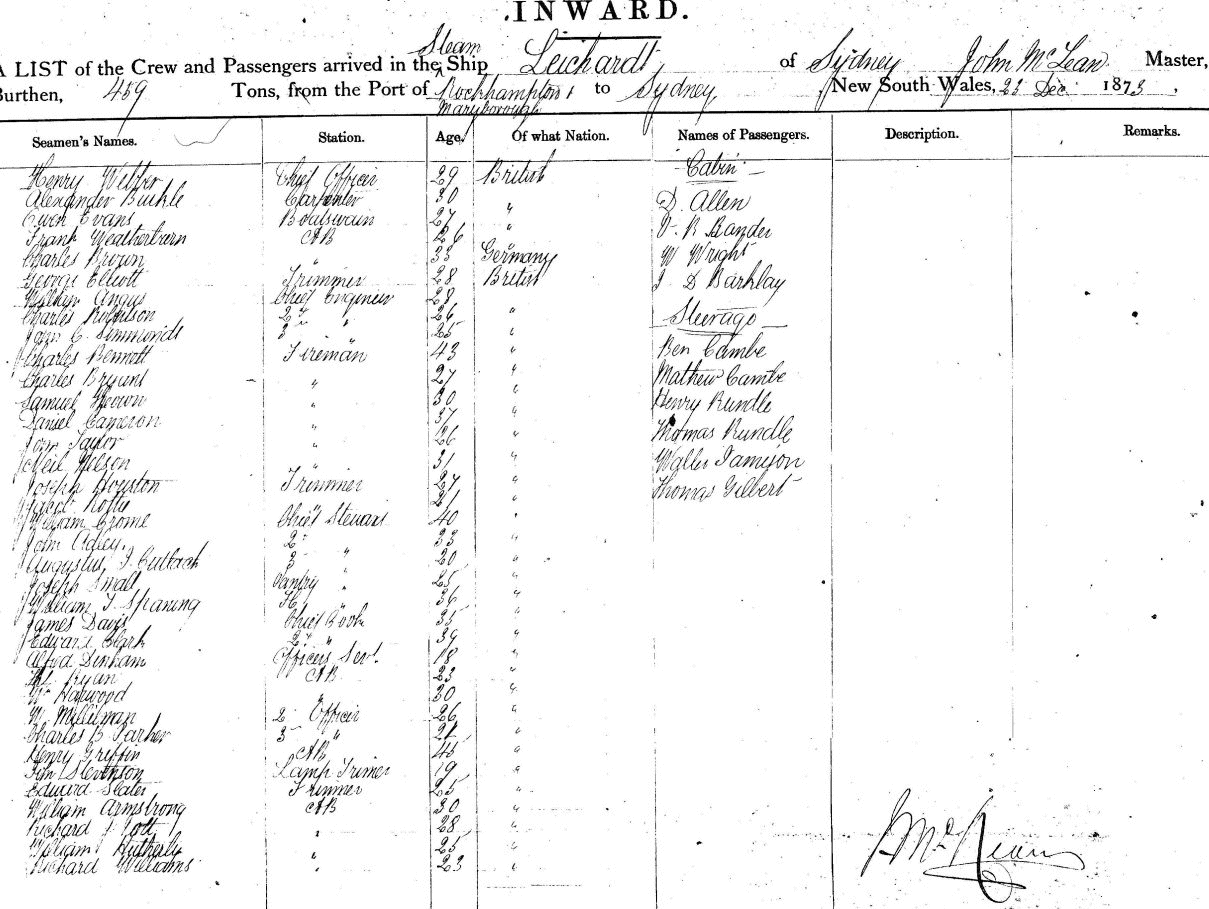 INWARD.
A LIST of the Crew and Passengers arrived in the Steam Ship Leichardt of Sydney John McLean Master,
Burthen, 459 Tons, from the Port of Rockhampton & Maryborough to Sydney, New South Wales, 23 Dec 1873.
Seamen's Names. Station. Age. Of what Nation. Names of Passengers. Description. Remarks.
Henry Webber Chief Officer 29 British Cabin
Alexander Buckle Carpenter 30 " D. Allen
Owen Evans Boatswain 27 "
Frank Weatherburn AB 26 " V. R Bander
Charles Brown " 33 Germany W Wright
George Elliott Trimmer 28 British J D Barklay
William Angus Chief Engineer 28 "
Charles Robertson 2nd " 26 " Steerage
John C. Simmonds 3 " 25 "
Charles Bennett Fireman 43 " Ben Cambe
Charles Bryant " 27 " Mathew Cambe
Samuel Brown " 30 " Henry Rundle
Daniel Cameron " 37 "
John Taylor " 26 " Thomas Rundle
Neil Nelson " 31 " Walter Jameson
Joseph Houston Trimmer 27 " Thomas Gilbert
Jacob " 21 "
William Crome Chief Steward 40 "
John Adley. 2 " 33 "
Augustus J 3 " 20 "
Joseph Small Pantry " 25 "
William T Spaning " 36 "
James Davis Chief Cook 35 "
Edward Clark 2 " 39 "
Alfred Denham Officers Servt. 18 "
Ryan AB 23 "
Wm Harwood " 30 "
W Milliman 2 Officer 26 "
Charles B Parker 3 " 21 "
Henry Griffin AB 45 "
Stevenson Lamp Trimer 19 "
Edward Slater Trimmer 25 "
William Armstrong AB 30 "
Richard J " 28 "
William " 25 "
Richard Williams " 23 "
J McLean